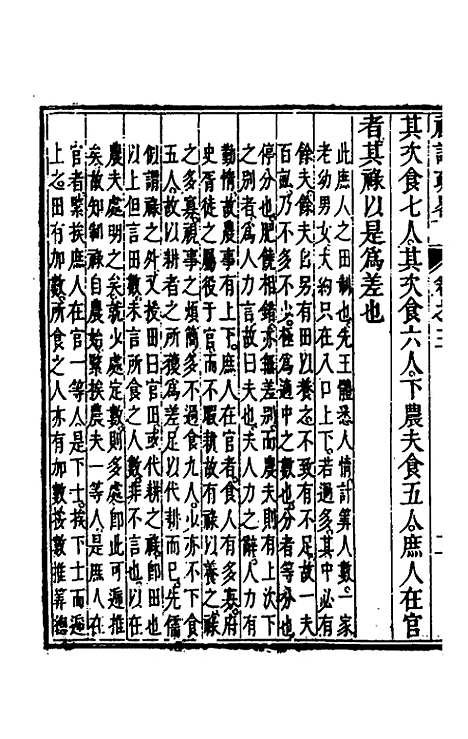 其次食七人其次食六人下農夫食五人庶人在官
者其祿以是爲差也
此庶人之田制也先王體悉人情計算人數一家
老幼男女大約只在八口上下若過多其中必有
餘夫餘夫已另有田以養之不致有不足故一夫
百畝乃不多不少極爲適中之數也分者等分也
停分也肥饒相錯亦無差別而農夫則有上次下
之別者爲人力言故曰夫也夫人力之辭人力有
勤惰故農功有上下庶人在官者食人有多寡府
史胥徒之屬役于官而不暇耕故有祿以養之祿
之多寡視事之煩簡多不過食九人少亦不下食
五人故以耕者之所穫爲差足以代耕而已先儒
似謂祿之外又授田曰官田或代耕之祿卽田也
以上但言田數未言所食之人數非不言也以在
農夫處明之矣就少處定數則多處卽此可遞推
矣故知制祿自農始緊挨農夫一等人是庶人在
官者緊挨庶人在官一等人是下士挨下士而遞
上之田有加數所食之人亦有加數按數推算總